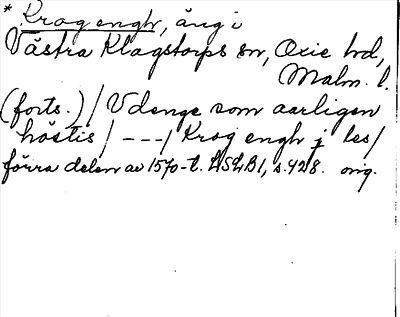 * Krog engh, äng i
Västra Klagstorps sn, Oxie hd,
Malm. l.
(forts.) / Udenge som aarligen
höstis / - - - / Krog engh j les/
förra delen av 1570-t. LSLB1, s. 428. orig.